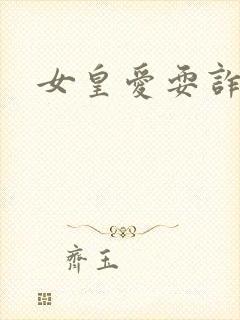 女皇愛耍詐
齊玉